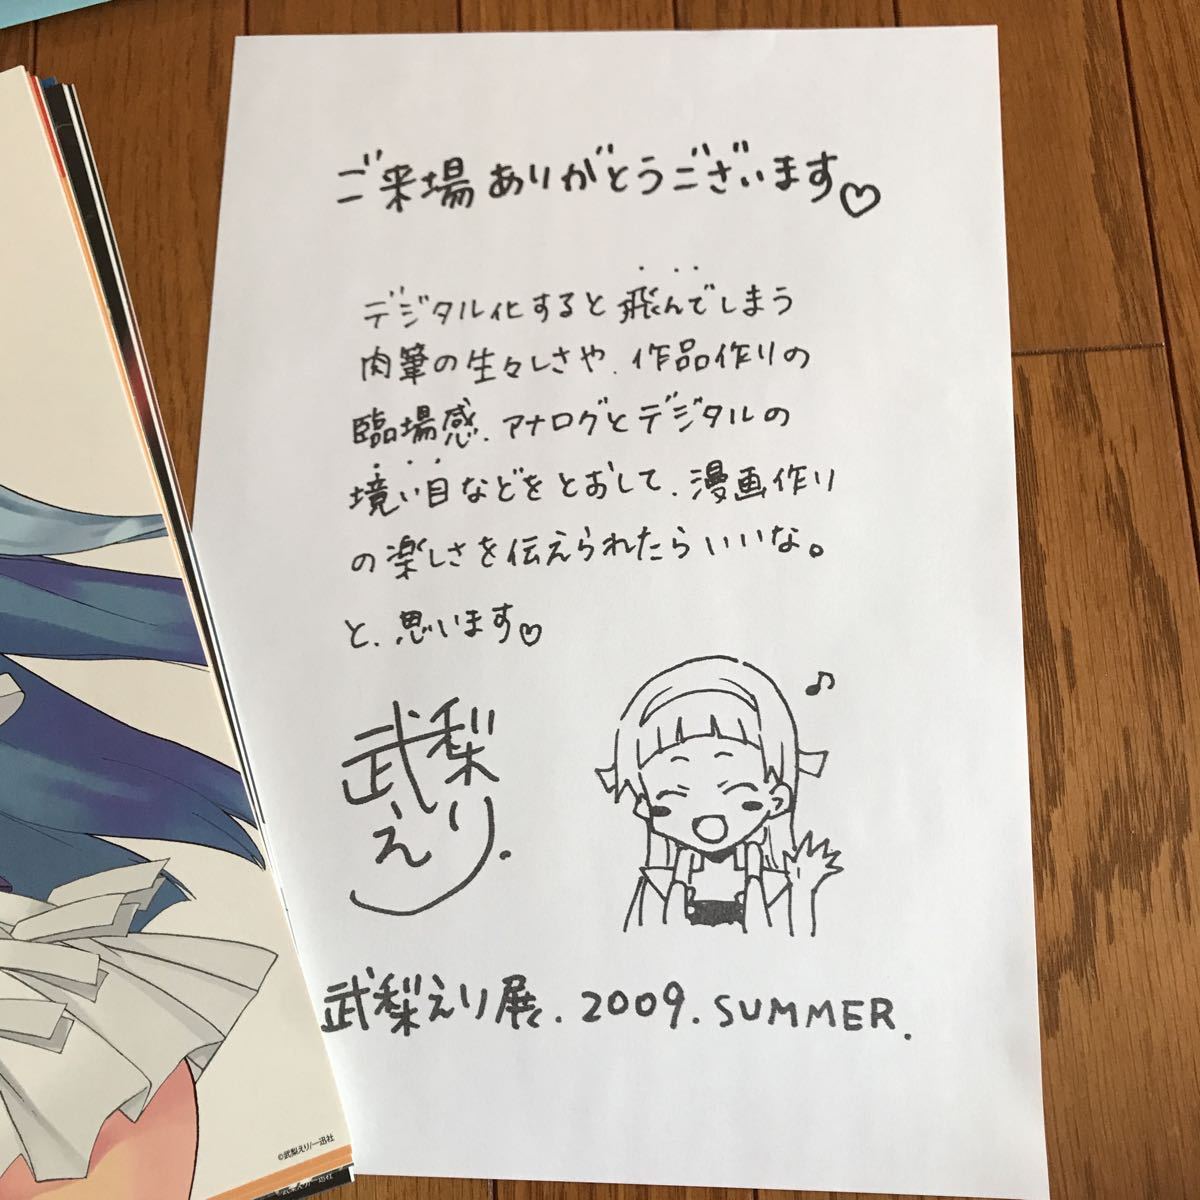 ご来場ありがとうございます♡
デジタル化すると飛んでしまう
肉筆の生々しさや、作品作りの
臨場感、アナログとデジタルの
境い目などをとおして、漫画作り
の楽しさを伝えられたらいいな。
と、思います♡
武梨えり.
武梨えり展. 2009. SUMMER.
©武梨えり/一迅社
©武梨えり/一迅社